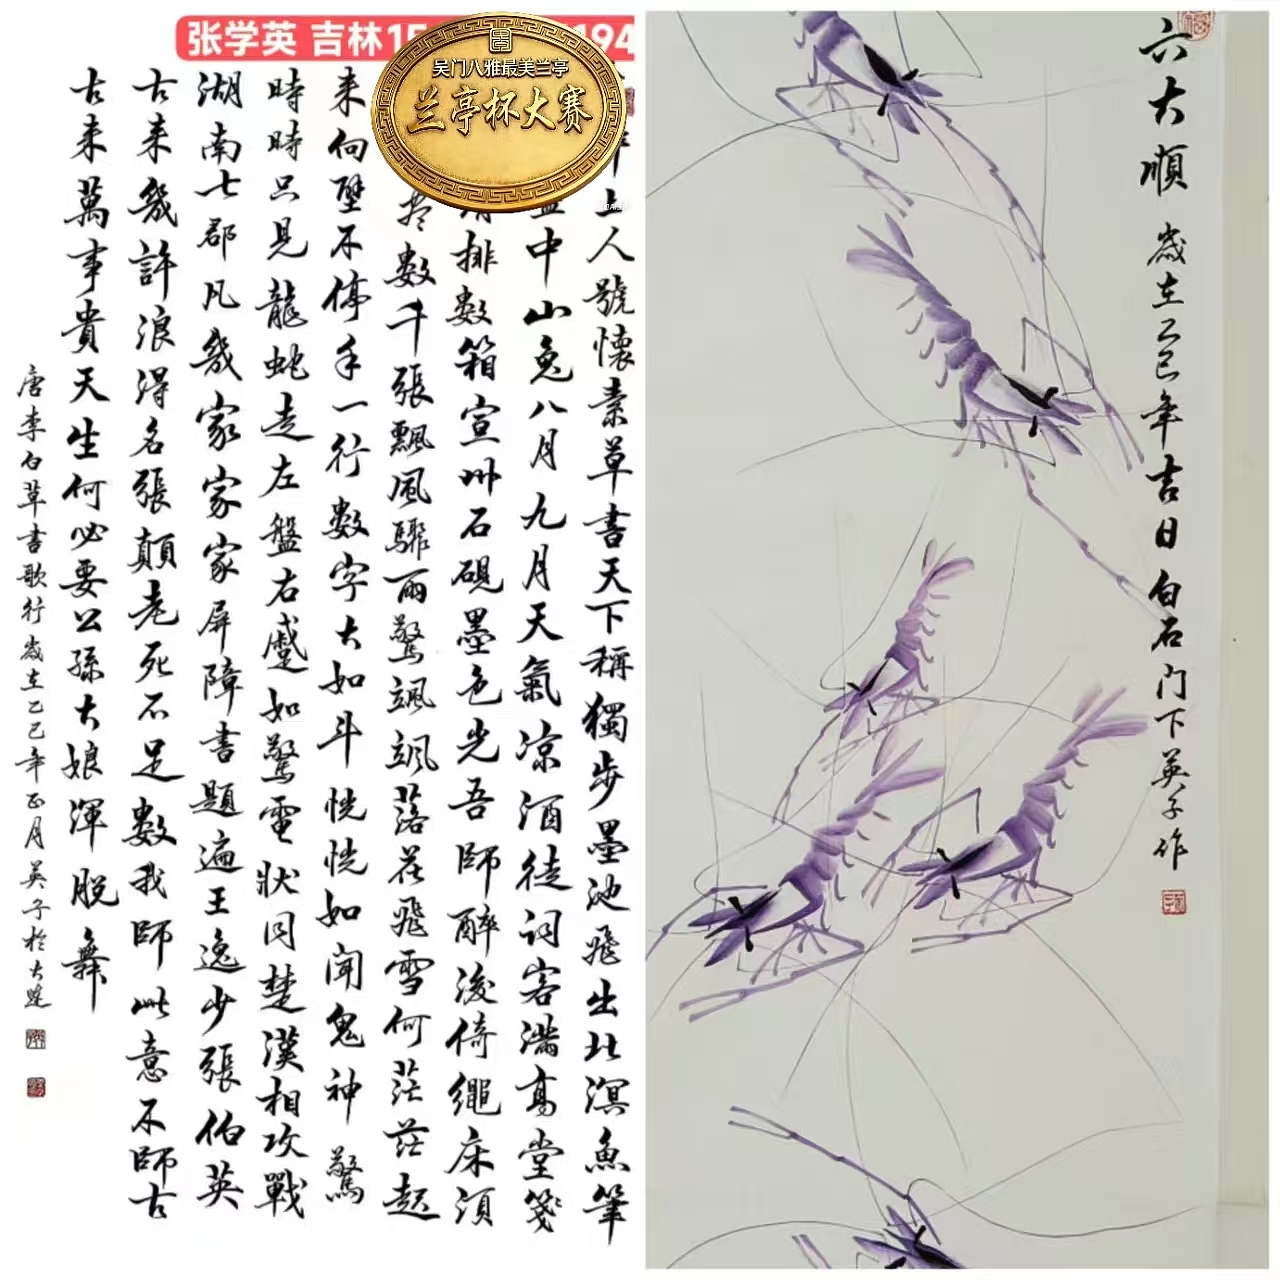 张学英 吉林15 194
吴门八雅最美兰亭
兰亭杯大赛
年上人號懷素草書天下稱獨步墨池飛出北溟魚筆
中山兔八月九月天氣凉酒徒詞客滿高堂箋
排數箱宣州石硯墨色光吾師醉後倚繩床須
數千張飄風驟雨驚颯颯落花飛雪何茫茫起
来向壁不停手一行數字大如斗恍恍如聞鬼神驚
時時只見龍蛇走左盤右蹙如驚電狀同楚漢相攻戰
湖南七郡凡幾家家家屏障書題遍王逸少張伯英
古来幾許浪得名張顛老死不足數我師此意不師古
古来萬事貴天生何必要公孫大娘渾脱舞
唐李白草書歌行歲在乙巳年正月英子於大連
六大順 歲在乙巳年吉日白石门下英子作